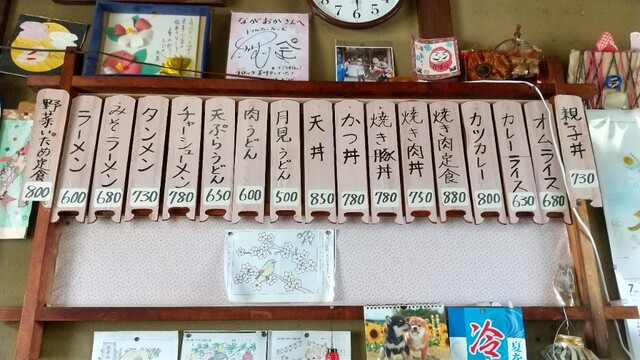 ながおかさんへ
野菜いため定食 800
ラーメン 600
みそラーメン 680
タンメン 730
チャーシューメン 780
天ぷらうどん 650
肉うどん 600
月見うどん 500
天丼 850
かつ丼 780
焼き豚丼 780
焼き肉丼 750
焼き肉定食 880
カツカレー 800
カレーライス 630
オムライス 680
親子丼 730
冷